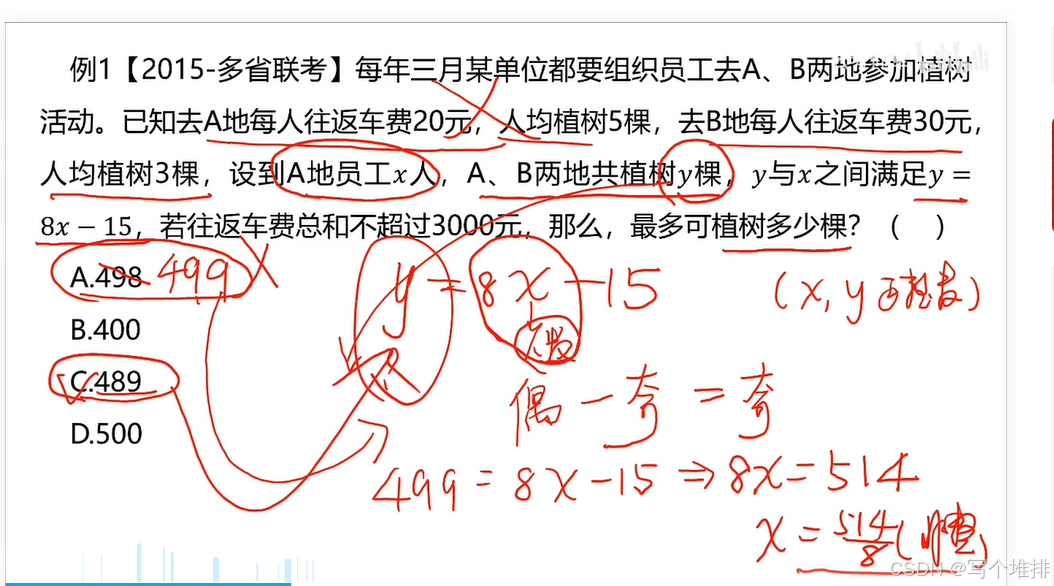 例1【2015-多省联考】每年三月某单位都要组织员工去A、B两地参加植树
活动。已知去A地每人往返车费20元，人均植树5棵，去B地每人往返车费30元，
人均植树3棵，设到A地员工x人，A、B两地共植树y棵，y与x之间满足y =
8x − 15，若往返车费总和不超过3000元，那么，最多可植树多少棵？（ ）
A.498 499
y = 8x − 15
(x, y 正整数)
B.400
C.489
偶 − 奇 = 奇
D.500
499 = 8x − 15 ⇒ 8x = 514
x = 514/8 (
CSDN @写个堆排